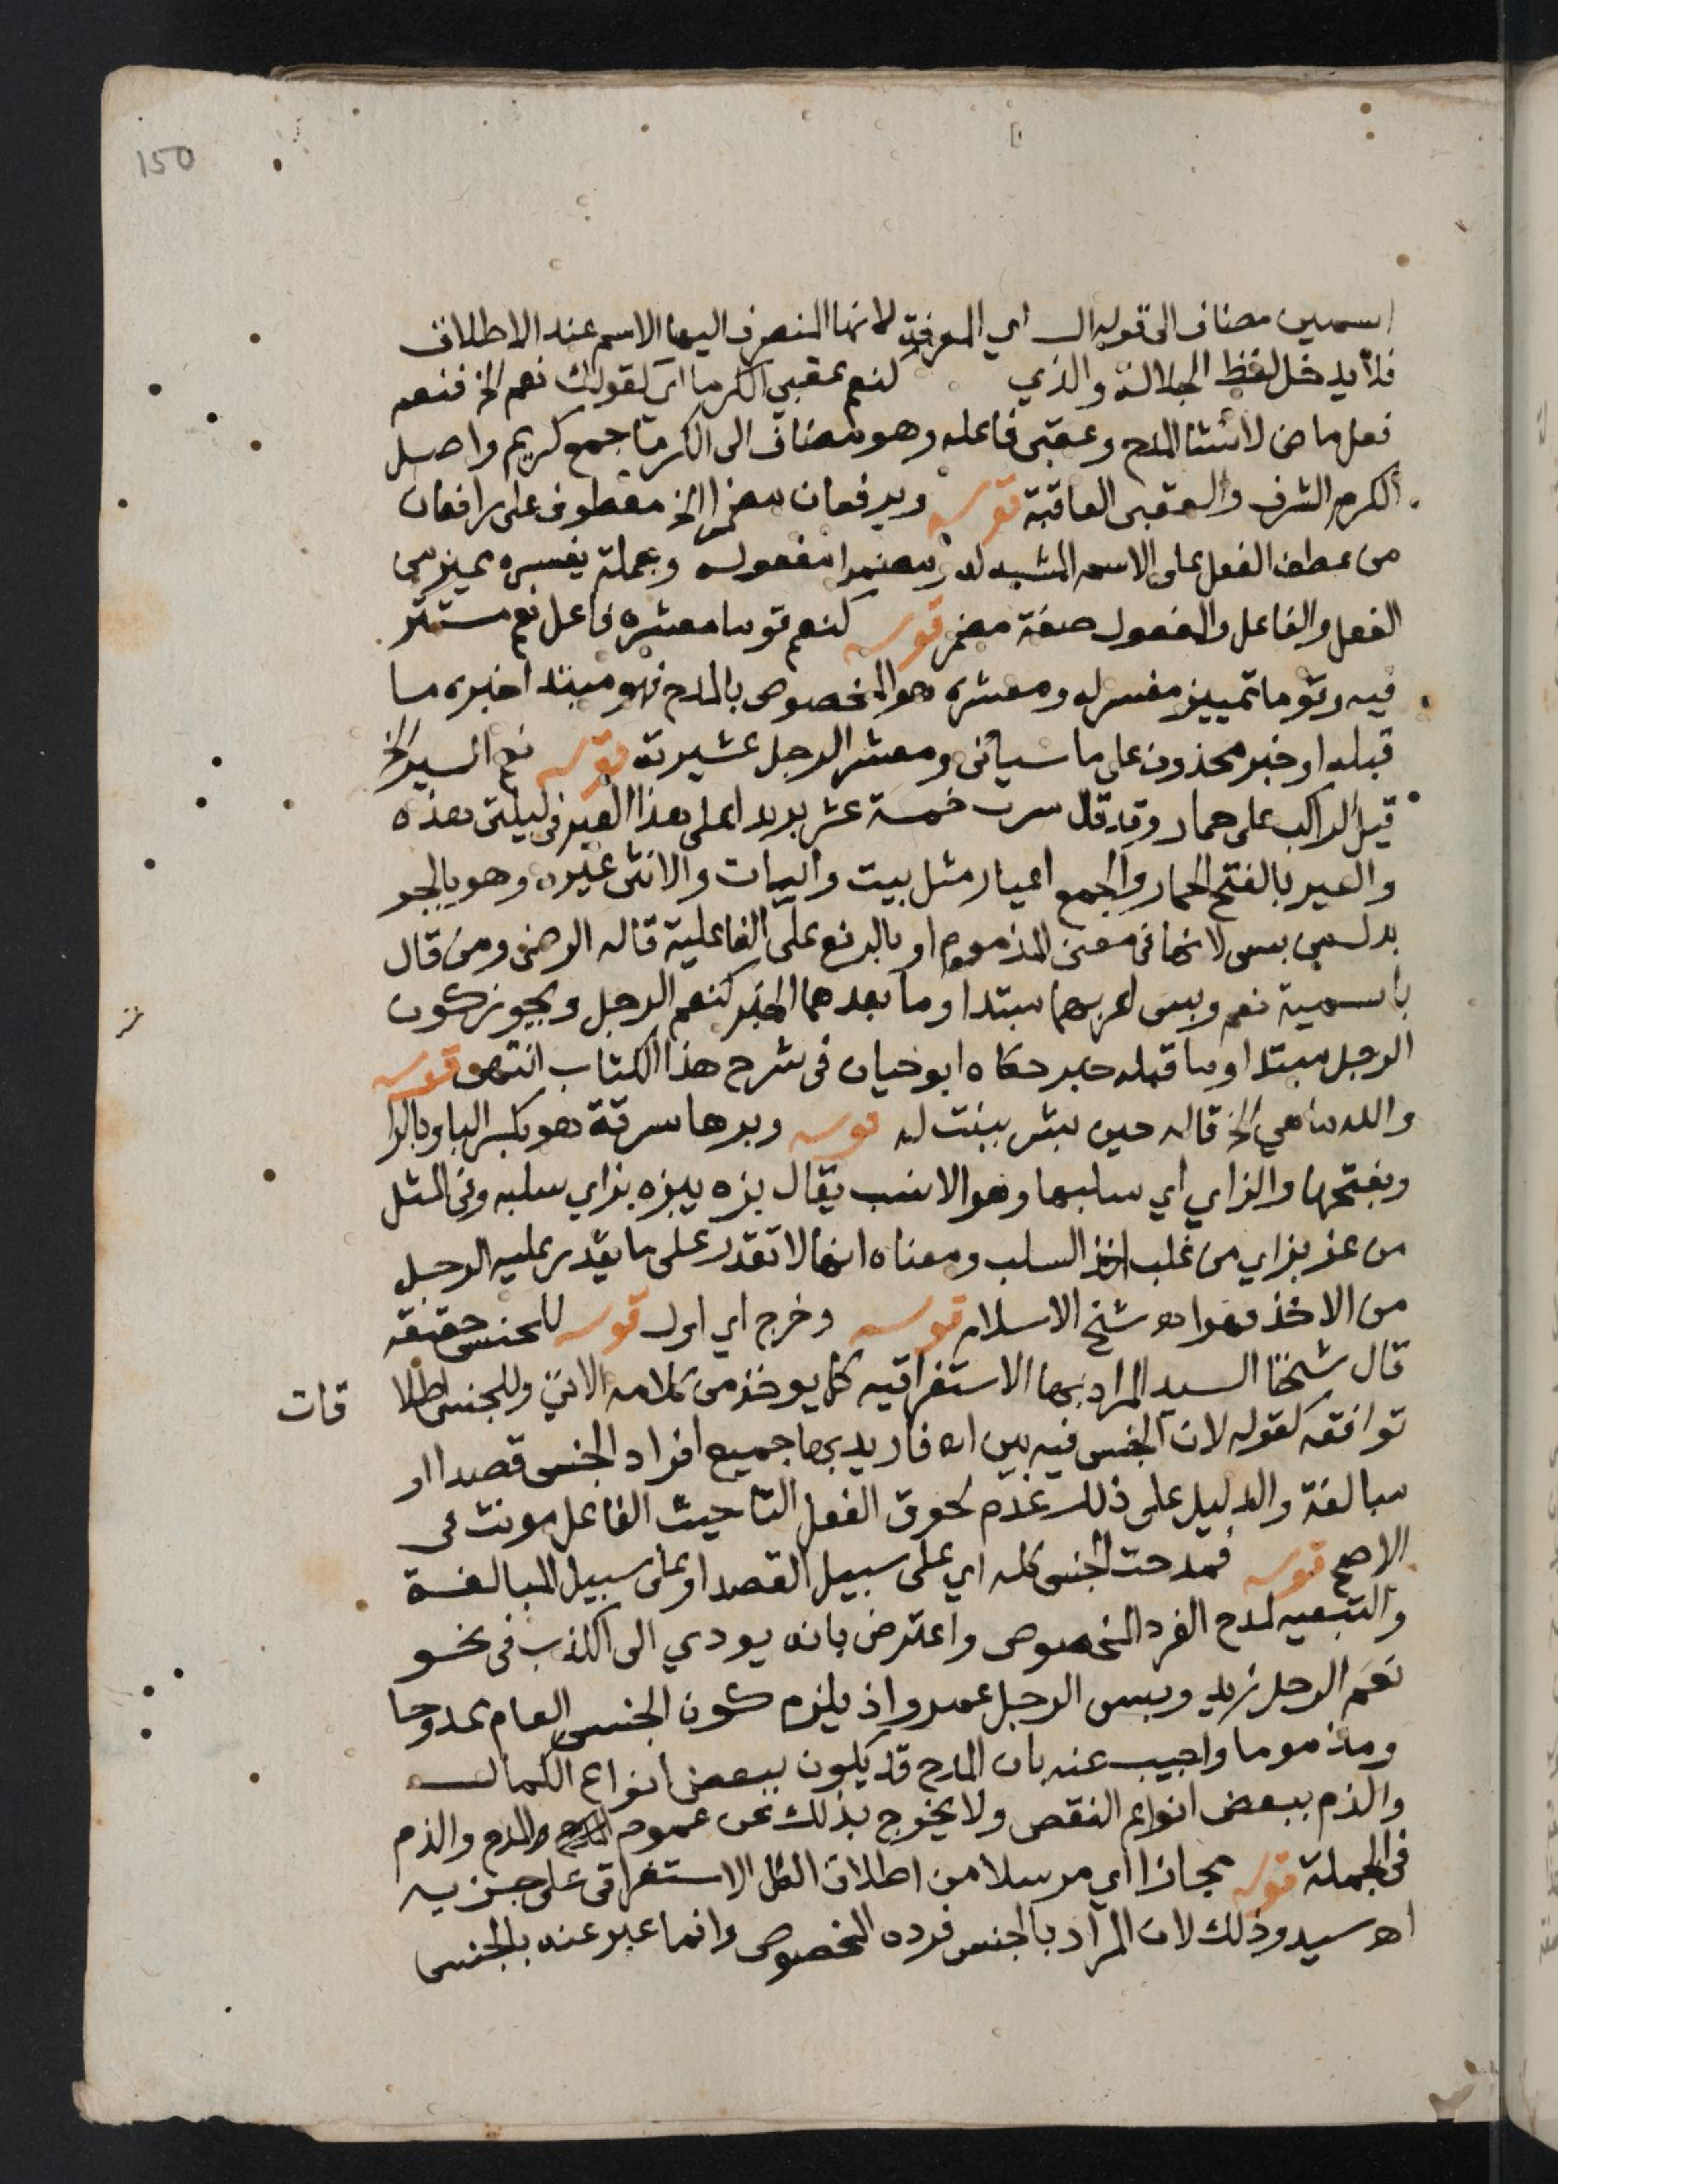 150
اسمين مضاف الى قوله ال اي المعرفة لانها المنصرف اليها الاسم عند الاطلاق
فلا يدخل لفظ الجلالة والذي كنعم عقبى الكرما اي كقولك نعم الخ فنعم
فعل ماض لانشا المدح وعقبى فاعله وهو مضاف الى الكرما جمع كريم واصل
الكرم الشرف والعقبى العاقبة قوله ويرفعان مضمرا الخ معطوف على رافعان
من عطف الفعل على الاسم المشبه له ومضمرا مفعوله وجملة يفسره مميز من
الفعل والفاعل والمفعول صفة مضمر قوله كنعم قوما معشره فاعل نعم مستتر
فيه وقوما تمييز مفسر له ومعشره هو المخصوص بالمدح فهو مبتدا خبره ما
قبله او خبر محذوف على ما سياتى ومعشر الرجل عشيرته قوله نعم السير الخ
قيل لراكب على حمار وقد قال سرت خمسة عشر بريدا على هذا العير فى ليلتى هذه
والعير بالفتح الحمار والجمع اعيار مثل بيت وابيات والانثى عيره وهو بالجر
بدل من بيس لانها فى معنى المذموم او بالرفع على الفاعلية قاله الرضى ومن قال
باسمية نعم وبيس اعربهما مبتدا وما بعدهما الخبر كنعم الرجل ويجوز كون
الرجل مبتدا وما قبله خبر حكاه ابو حيان فى شرح هذا الكتاب انتهى قوله
والله ما هي الخ قاله حين بشر ببنت له قوله وبرها سرقة هو بكسر البا وبالرا
وبفتحها والزاي اي سلبها وهو الانسب يقال بزه يبزه بزاي سلبه وفى المثل
من عز بزاي من غلب اخذ السلب ومعناه انها لا تقدر على ما يقدر عليه الرجل
من الاخذ وهو اه شيخ الاسلام قوله وخرج اي اول قوله للجنس حقيقه
قال شيخنا السيد المراد بها الاستغراقيه كما يوخذ من كلامه الاتي وللجنس اطلا قات
توافقه كقوله لان الجنس فيه بين اه فاريد بها جميع افراد الجنس قصدا او
مبالغة والدليل على ذلك عدم لحوق الفعل التا حيث الفاعل مونث فى
الاصح قوله فمدحت الجنس كله اي على سبيل القصد او على سبيل المبالغة
والتبعيه لمدح الفرد المخصوص واعترض بانه يودي الى الكذب فى نحو
نعم الرجل زيد وبيس الرجل عمرو اذ يلزم كون الجنس العام ممدوحا
ومذموما واجيب عنه بان المدح قد يكون ببعض انواع الكمال
والذم ببعض انواع النقص ولا يخرج بذلك عن عموم المدح والذم
فى الجملة قوله مجازا اي مرسلا من اطلاق الكل الاستغراقى على جزييه
اه سيد وذلك لان المراد بالجنس فرده المخصوص وانما عبر عنه بالجنس